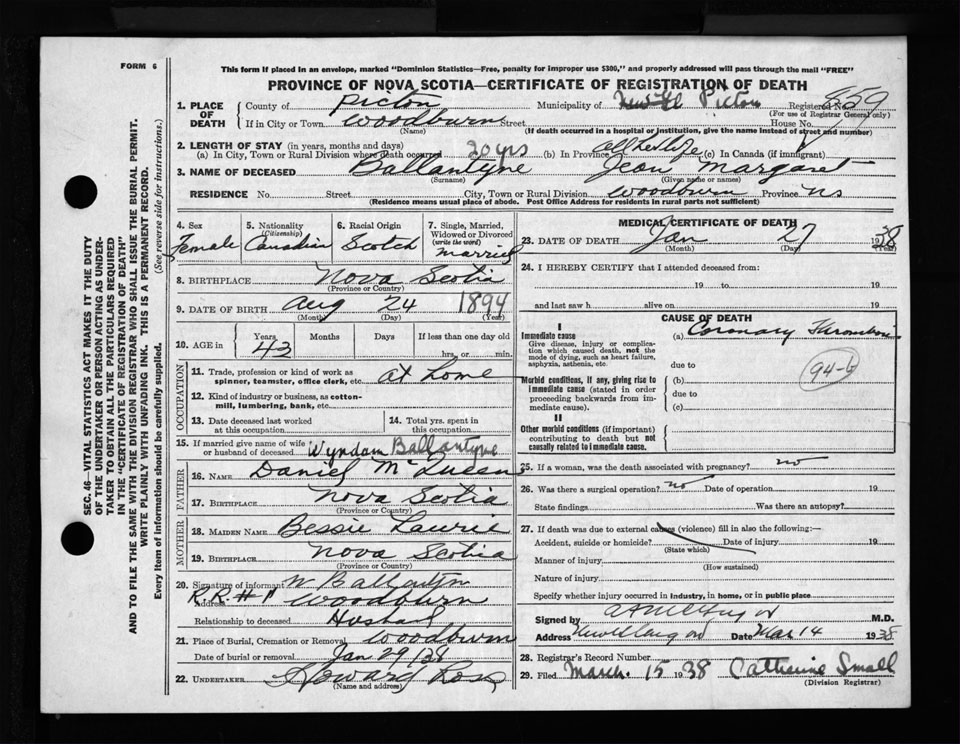 FORM 6
This form if placed in an envelope, marked "Dominion Statistics—Free, penalty for improper use $300," and properly addressed will pass through the mail "FREE"
PROVINCE OF NOVA SCOTIA—CERTIFICATE OF REGISTRATION OF DEATH
1. PLACE OF DEATH County of Pictou Municipality of Pictou Registered No. 859
(For use of Registrar General only)
If in City or Town Woodburn Street House No.
(Name) (If death occurred in a hospital or institution, give the name instead of street and number)
2. LENGTH OF STAY (in years, months and days)
(a) In City, Town or Rural Division where death occurred 20 yrs (b) In Province all her life (c) In Canada (if immigrant)
3. NAME OF DECEASED Ballantyne Jean Margaret
(Surname) (Given name or names)
RESIDENCE No. Street City, Town or Rural Division Woodburn Province NS
(Residence means usual place of abode. Post Office Address for residents in rural parts not sufficient)
4. Sex Female
5. Nationality (Citizenship) Canadian
6. Racial Origin Scotch
7. Single, Married, Widowed or Divorced (write the word) Married
8. BIRTHPLACE Nova Scotia
(Province or Country)
9. DATE OF BIRTH Aug 24 1894
(Month) (Day) (Year)
10. AGE in Years 43 Months Days If less than one day hrs. or min.
OCCUPATION
11. Trade, profession or kind of work as spinner, teamster, office clerk, etc. at home
12. Kind of industry or business, as cotton-mill, lumbering, bank, etc.
13. Date deceased last worked at this occupation
14. Total yrs. spent in this occupation
15. If married give name of wife or husband of deceased Wyndam Ballantyne
FATHER
16. NAME Daniel McQueen
17. BIRTHPLACE Nova Scotia
(Province or Country)
MOTHER
18. MAIDEN NAME Bessie Laurie
19. BIRTHPLACE Nova Scotia
(Province or Country)
20. Signature of informant W Ballantyne
Address R.R.#1 Woodburn
Relationship to deceased Husband
21. Place of Burial, Cremation or Removal Woodburn
Date of burial or removal Jan 29/38
22. UNDERTAKER Howard Ross
(Name and address)
MEDICAL CERTIFICATE OF DEATH
23. DATE OF DEATH Jan 27 1938
(Month) (Day) (Year)
24. I HEREBY CERTIFY that I attended deceased from
19 to 19
and last saw h alive on 19
CAUSE OF DEATH
I
Immediate cause
Give disease, injury or complication which caused death, not the mode of dying, such as heart failure, asphyxia, asthenia, etc.
(a) Coronary Thrombosis
due to
94-b
Morbid conditions, if any, giving rise to immediate cause (stated in order proceeding backwards from immediate cause).
(b)
due to
(c)
II
Other morbid conditions (if important) contributing to death but not causally related to immediate cause.
25. If a woman, was the death associated with pregnancy? no
26. Was there a surgical operation? no Date of operation 19
State findings Was there an autopsy?
27. If death was due to external causes (violence) fill in also the following:—
Accident, suicide or homicide? Date of injury 19
(State which)
Manner of injury
(How sustained)
Nature of injury
Specify whether injury occurred in industry, in home, or in public place
Signed by M.D.
Address Date Mar 14 1938
28. Registrar's Record Number
29. Filed March. 15 1938 Catherine Small
(Division Registrar)
SEC. 46—VITAL STATISTICS ACT MAKES IT THE DUTY
OF THE UNDERTAKER OR PERSON ACTING AS UNDERTAKER
TO OBTAIN ALL THE PARTICULARS REQUIRED
IN THE "CERTIFICATE OF REGISTRATION OF DEATH"
AND TO FILE THE SAME WITH THE DIVISION REGISTRAR WHO SHALL ISSUE THE BURIAL PERMIT.
WRITE PLAINLY WITH UNFADING INK. THIS IS A PERMANENT RECORD.
Every item of information should be carefully supplied. (See reverse side for instructions.)